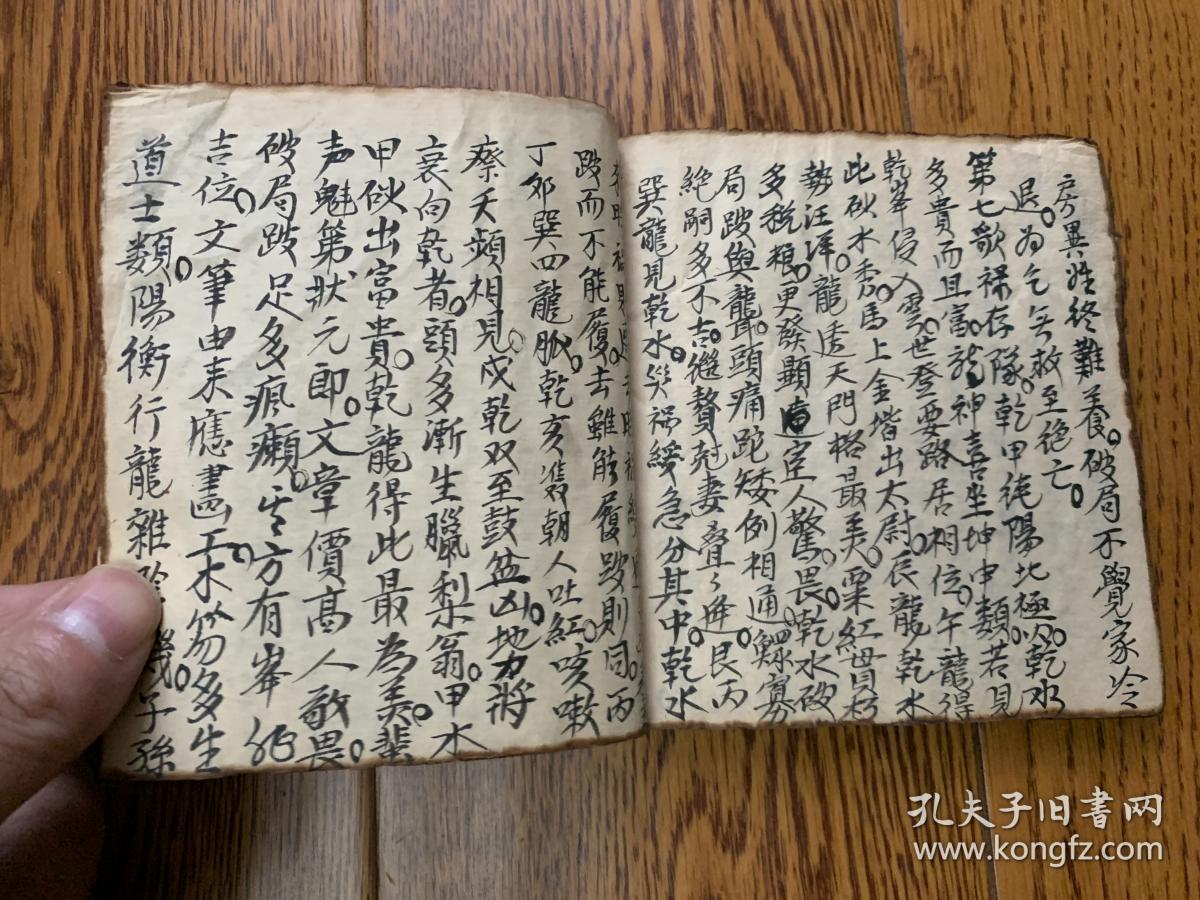 房異姓終難養。破局不覺家冷
退。為乞無救至絕亡。
第七歌祿存隊。乾甲純陽北極以。乾水
多貴而且富。龍神喜坐坤申類。若見
乾峯侵入雲。世登要路居相位。午龍得
此砂水秀。馬上金堦出太尉。辰龍乾水
勢汪洋。龍透天門格最美。粟紅貫朽
多稅粮。更發顯宦人驚畏。乾水破
局跛與聾。頭痛駝矮例相通。鰥寡
絕嗣多不吉。繼贅尅妻疊々逢。艮丙
巽龍見乾水。災禍緩急分其中。乾水
跛而不能履。去雖能履跛則同。丙
丁卯巽四龍脈。乾亥雙朝人吐紅。咳嗽
瘵夭頻相見。戌乾双至鼓盆凶。地力將
衰向乾者。頭多漸生臘梨翁。甲水
甲砂出富貴。乾龍得此最為美。蜚
声魁第状元即。文章價高人敬畏。
破局跛足多瘋癲。方有峯
吉位。文筆由来應畫工。木笏多生
道士類。陽衡行龍雜 幾。子孫
孔夫子旧书网
www.kongfz.com